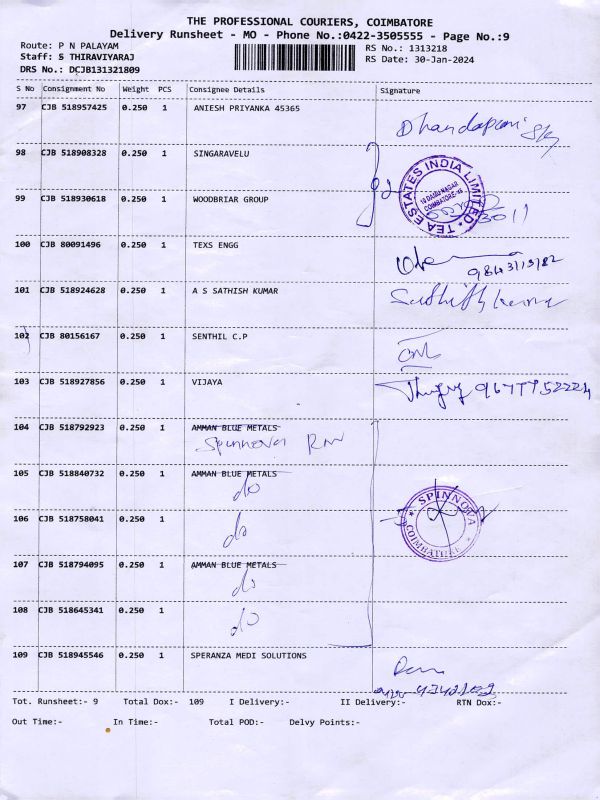 THE PROFESSIONAL COURIERS, COIMBATORE
Delivery Runsheet - MO - Phone No.:0422-3505555 - Page No.:9
Route: P N PALAYAM
RS No.: 1313218
Staff: S THIRAVIYARAJ
RS Date: 30-Jan-2024
DRS No.: DCJB131321809
S No Consignment No Weight PCS Consignee Details Signature
97 CJB 518957425 0.250 1 ANIESH PRIYANKA 45365
Dhandapani
98 CJB 518908328 0.250 1 SINGARAVELU
TEA ESTATES INDIA LIMITED
COIMBATORE
99 CJB 518930618 0.250 1 WOODBRIAR GROUP
100 CJB 80091496 0.250 1 TEXS ENGG
101 CJB 518924628 0.250 1 A S SATHISH KUMAR
Sathish kumar
102 CJB 80156167 0.250 1 SENTHIL C.P
103 CJB 518927856 0.250 1 VIJAYA
104 CJB 518792923 0.250 1 AMMAN BLUE METALS
Spinnova
105 CJB 518840732 0.250 1 AMMAN BLUE METALS
do
106 CJB 518758041 0.250 1
do
SPINNOVA
COIMBATORE
107 CJB 518794095 0.250 1 AMMAN BLUE METALS
do
108 CJB 518645341 0.250 1
do
109 CJB 518945546 0.250 1 SPERANZA MEDI SOLUTIONS
Tot. Runsheet:- 9 Total Dox:- 109 I Delivery:- II Delivery:- RTN Dox:-
Out Time:- In Time:- Total POD:- Delvy Points:-